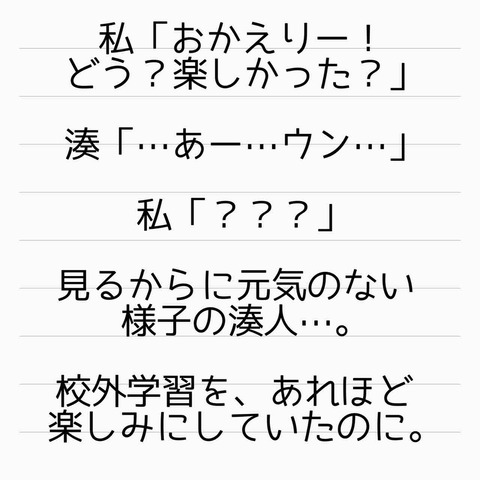 私「おかえりー！
どう？楽しかった？」
湊「…あー…ウン…」
私「？？？」
見るからに元気のない
様子の湊人…。
校外学習を、あれほど
楽しみにしていたのに。